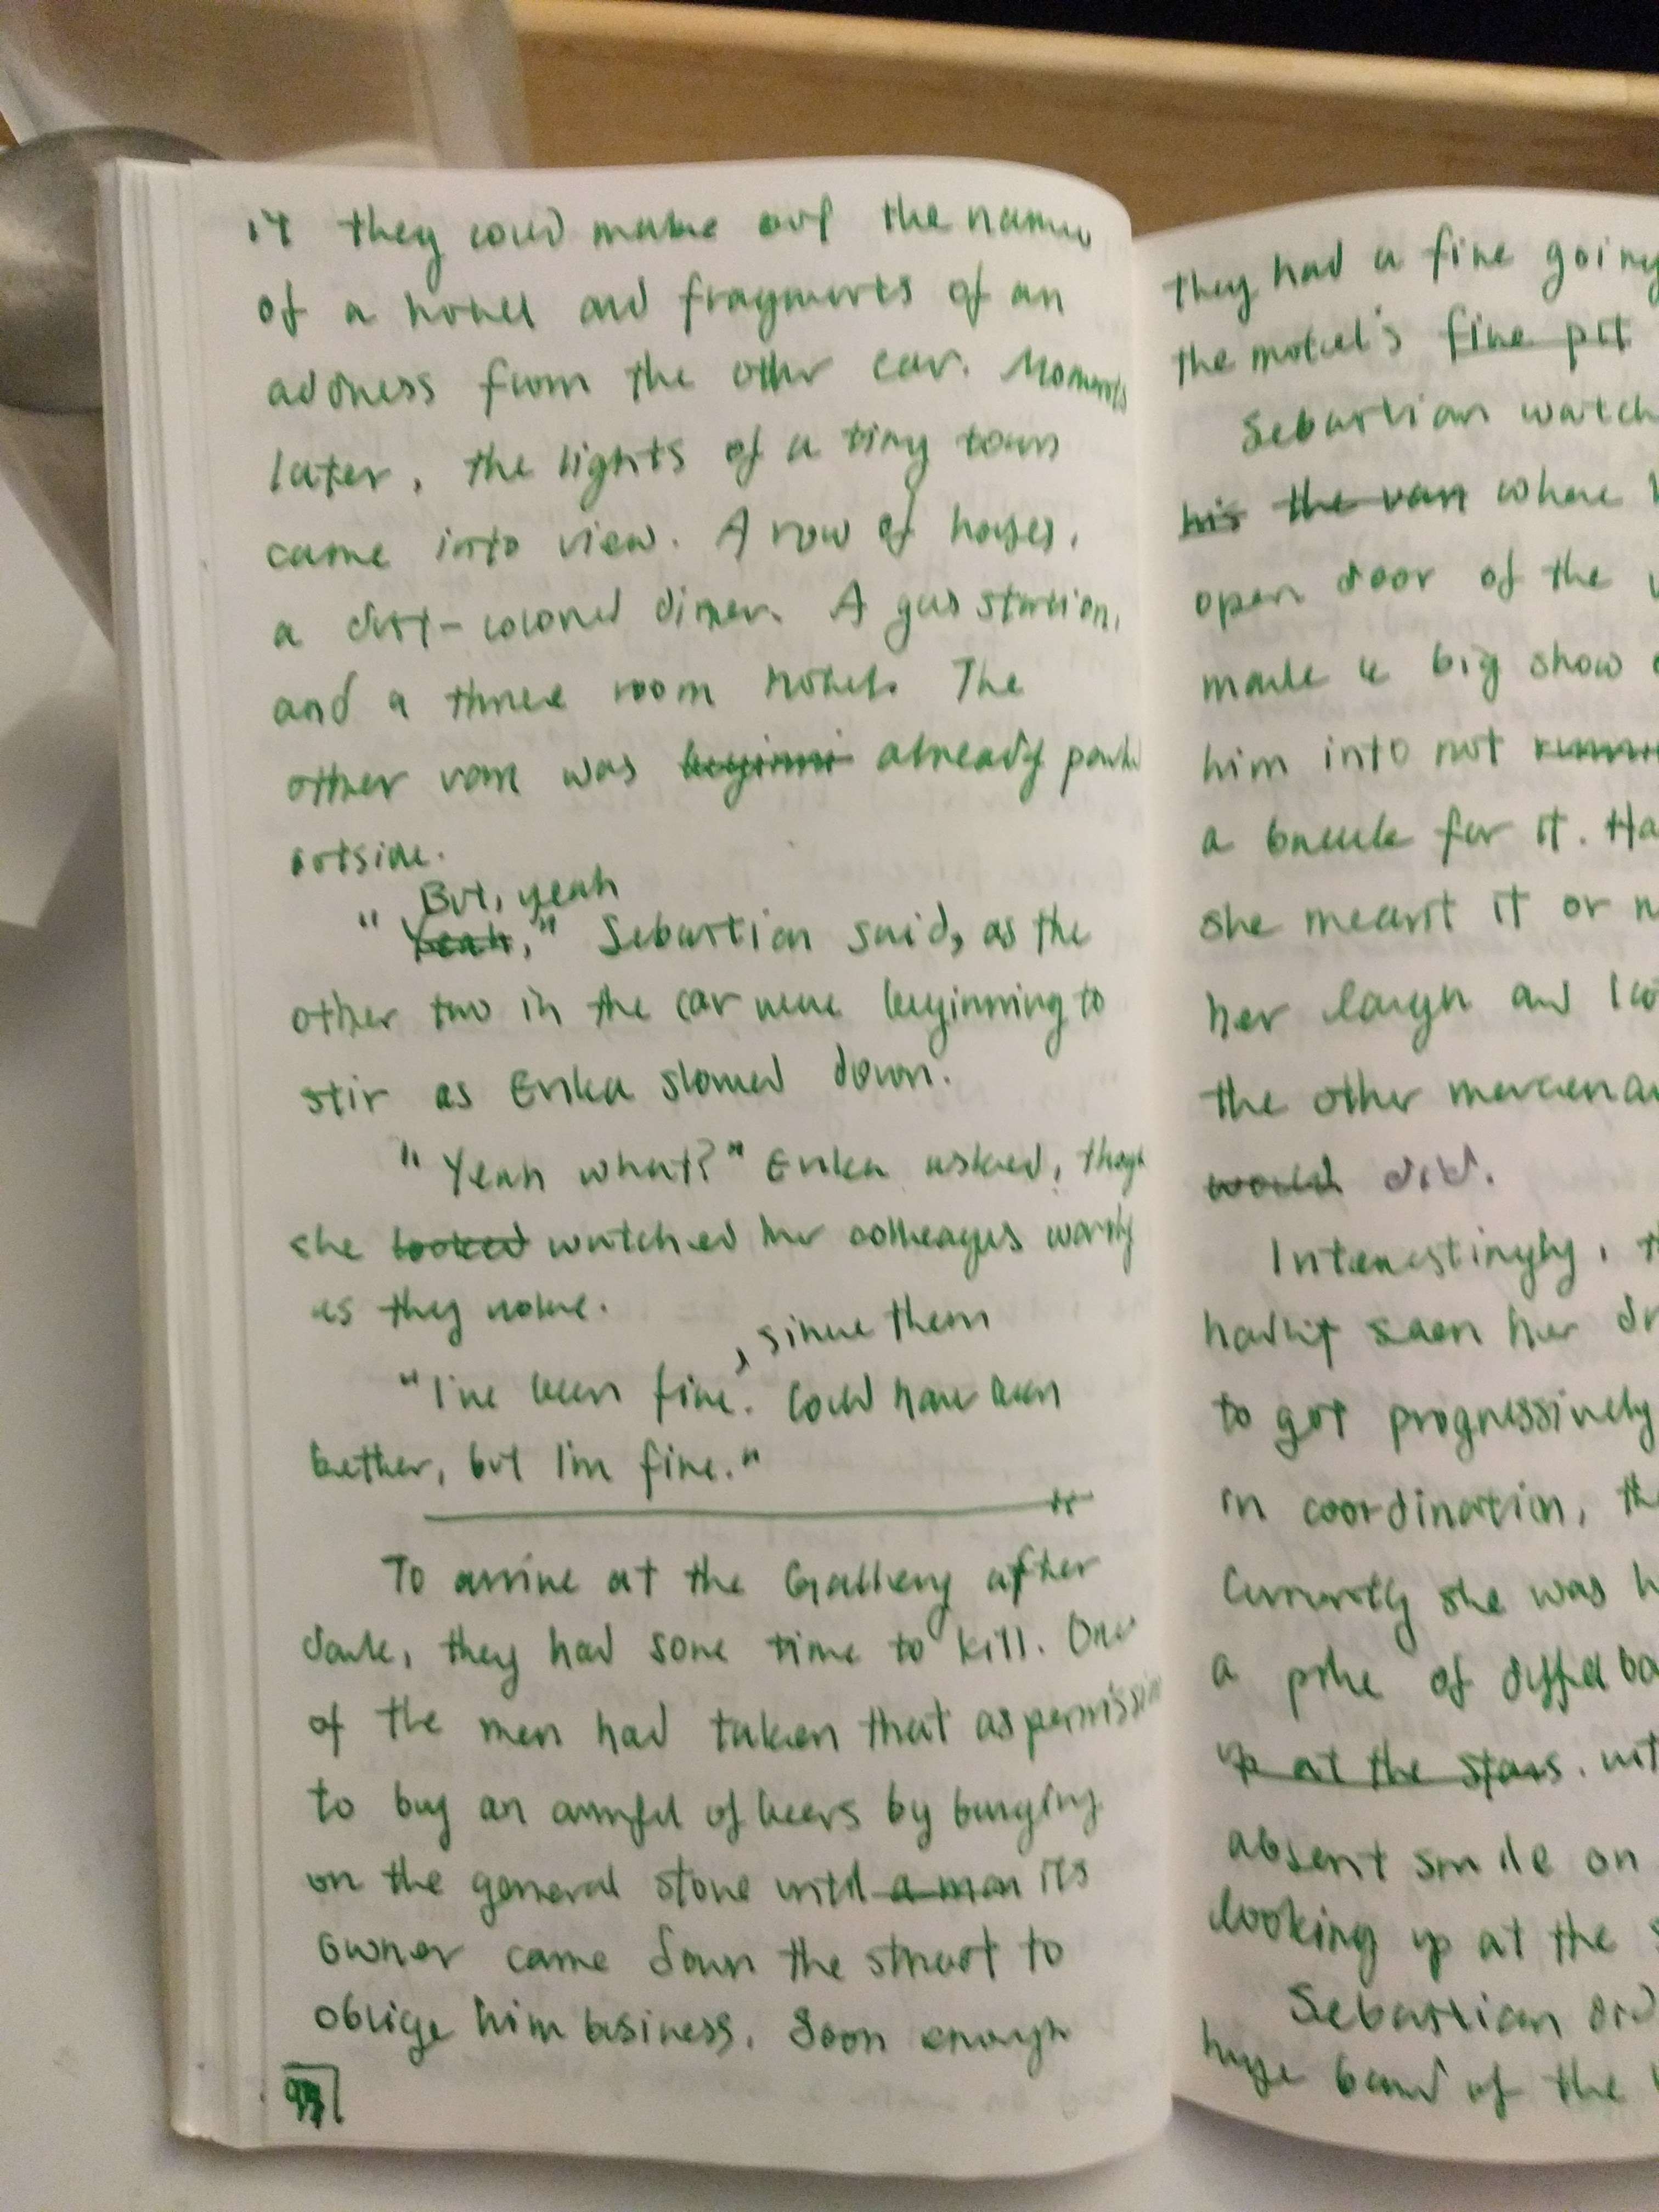 it they could make out the names
of a hotel and fragments of an
address from the other car. Moments
later, the lights of a tiny town
came into view. A row of houses,
a dust-colored diner. A gas station,
and a three room hotel. The
other van was beginni already parked
outside.
But, yeah
"Yeah," Sebastian said, as the
other two in the car were beginning to
stir as Erika slowed down.
"Yeah what?" Erika asked, though
she looked watched her colleagues warily
as they woke.
, since them
"I've been fine. Could have been
better, but I'm fine."
To arrive at the Gallery after
dark, they had some time to kill. One
of the men had taken that as permission
to buy an armful of beers by banging
on the general store until a man its
owner came down the street to
oblige him business. Soon enough
they had a fire going
the motel's fire pit
Sebastian watch
his the van where
open door of the
made a big show
him into not
a break for it. Ha
she meant it or n
her laugh and loo
the other mercenar
would did.
Interestingly, th
hadn't seen her dr
to get progressively
in coordination, the
Currently she was h
a pile of duffel ba
up at the stars. wit
absent smile on
looking up at the s
Sebastian did
huge band of the